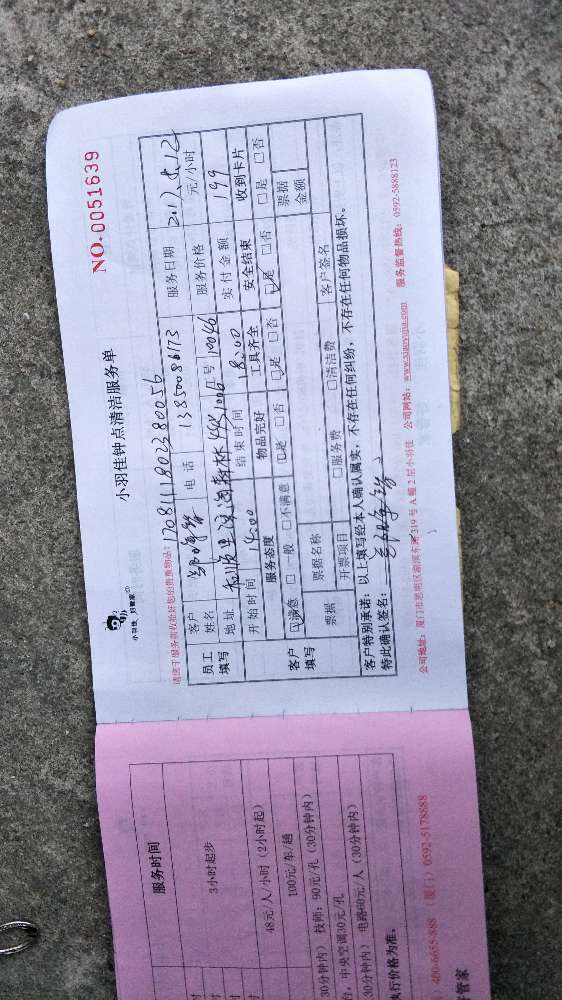 NO.0051639
小羽佳钟点清洁服务单
小羽佳 好管家
1708111802380056
员工填写 客户姓名 电话 13850086173 服务日期 2017.8.12
地址 工号 10046 服务价格 元/小时
开始时间 14:00 结束时间 18:00 实付金额 199
客户填写 服务态度 物品完好 工具齐全 安全结束 收到卡片
☑满意 □一般 □不满意 ☑是 □否 ☑是 □否 ☑是 □否 □是 □否
票据 票据名称 票据金额
开票项目 □服务费 □清洁费 客户签名
客户特别承诺：以上填写经本人确认属实，不存在任何纠纷，不存在任何物品损坏。
特此确认签名：
公司地址：厦门市思明区 319号A幢2层小羽佳 公司网站：www.xiaoyujia.com 服务监督热线：0592-5888123
服务时间
3小时起步
48元/人/小时（2小时起）
100元/车/趟
30分钟内） 技师：90元/孔（30分钟内）
中央空调30元/孔
30分钟内） 电路60元/人（30分钟内）
执行价格为准。
400-6655-888 （厦门）0592-5178888
管家